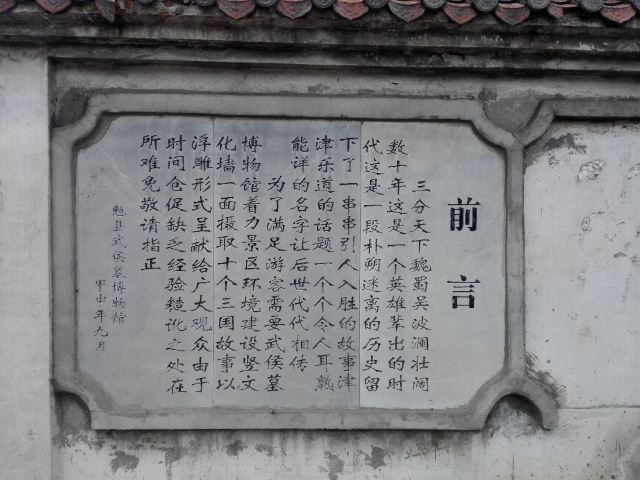 前言
三分天下魏蜀吴波澜壮阔
数十年这是一个英雄辈出的时
代这是一段朴朔迷离的历史留
下了一串串引人入胜的故事津
津乐道的话题一个个令人耳熟
能详的名字让后世代代相传
为了满足游客需要武侯墓
博物馆着力景区环境建设竖文
化墙一面摄取十个三国故事以
浮雕形式呈献给广大观众由于
时间仓促缺乏经验糙讹之处在
所难免敬请指正
勉县武侯墓博物馆
甲申年九月